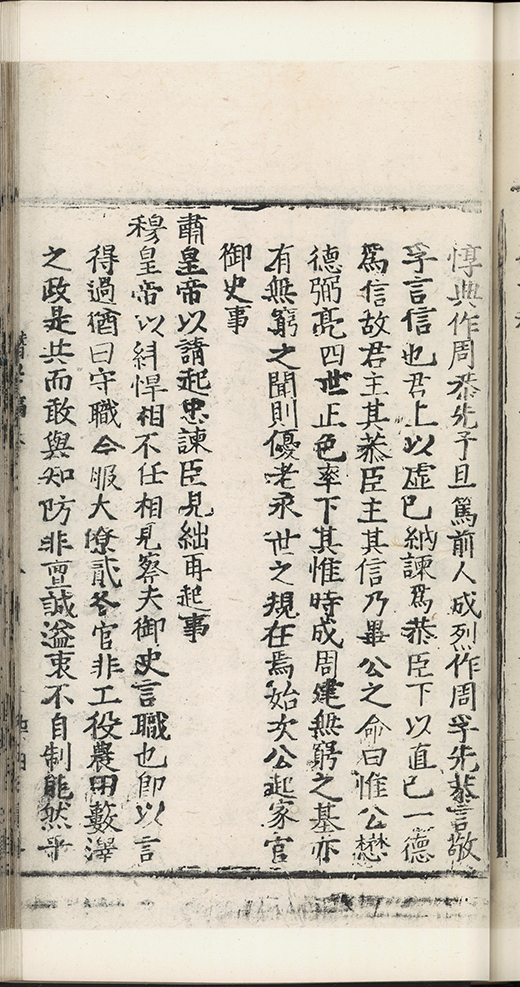 惇典作周恭先予旦篤前人成烈作周孚先恭言敬
孚言信也君上以虛已納諫爲恭臣下以直已一德
爲信故君主其恭臣主其信乃畢公之命曰惟公懋
德弼亮四世正色率下其惟時成周建無窮之基亦
有無窮之聞則優老永世之規在焉始次公起家官
御史事
肅皇帝以請起忠諫臣見絀再起事
穆皇帝以糾悍相不任相見察夫御史言職也卽以言
得過猶曰守職今服大寮貳冬官非工役農田藪澤
之政是共而敢與知防非亶誠溢衷不自制能然乎